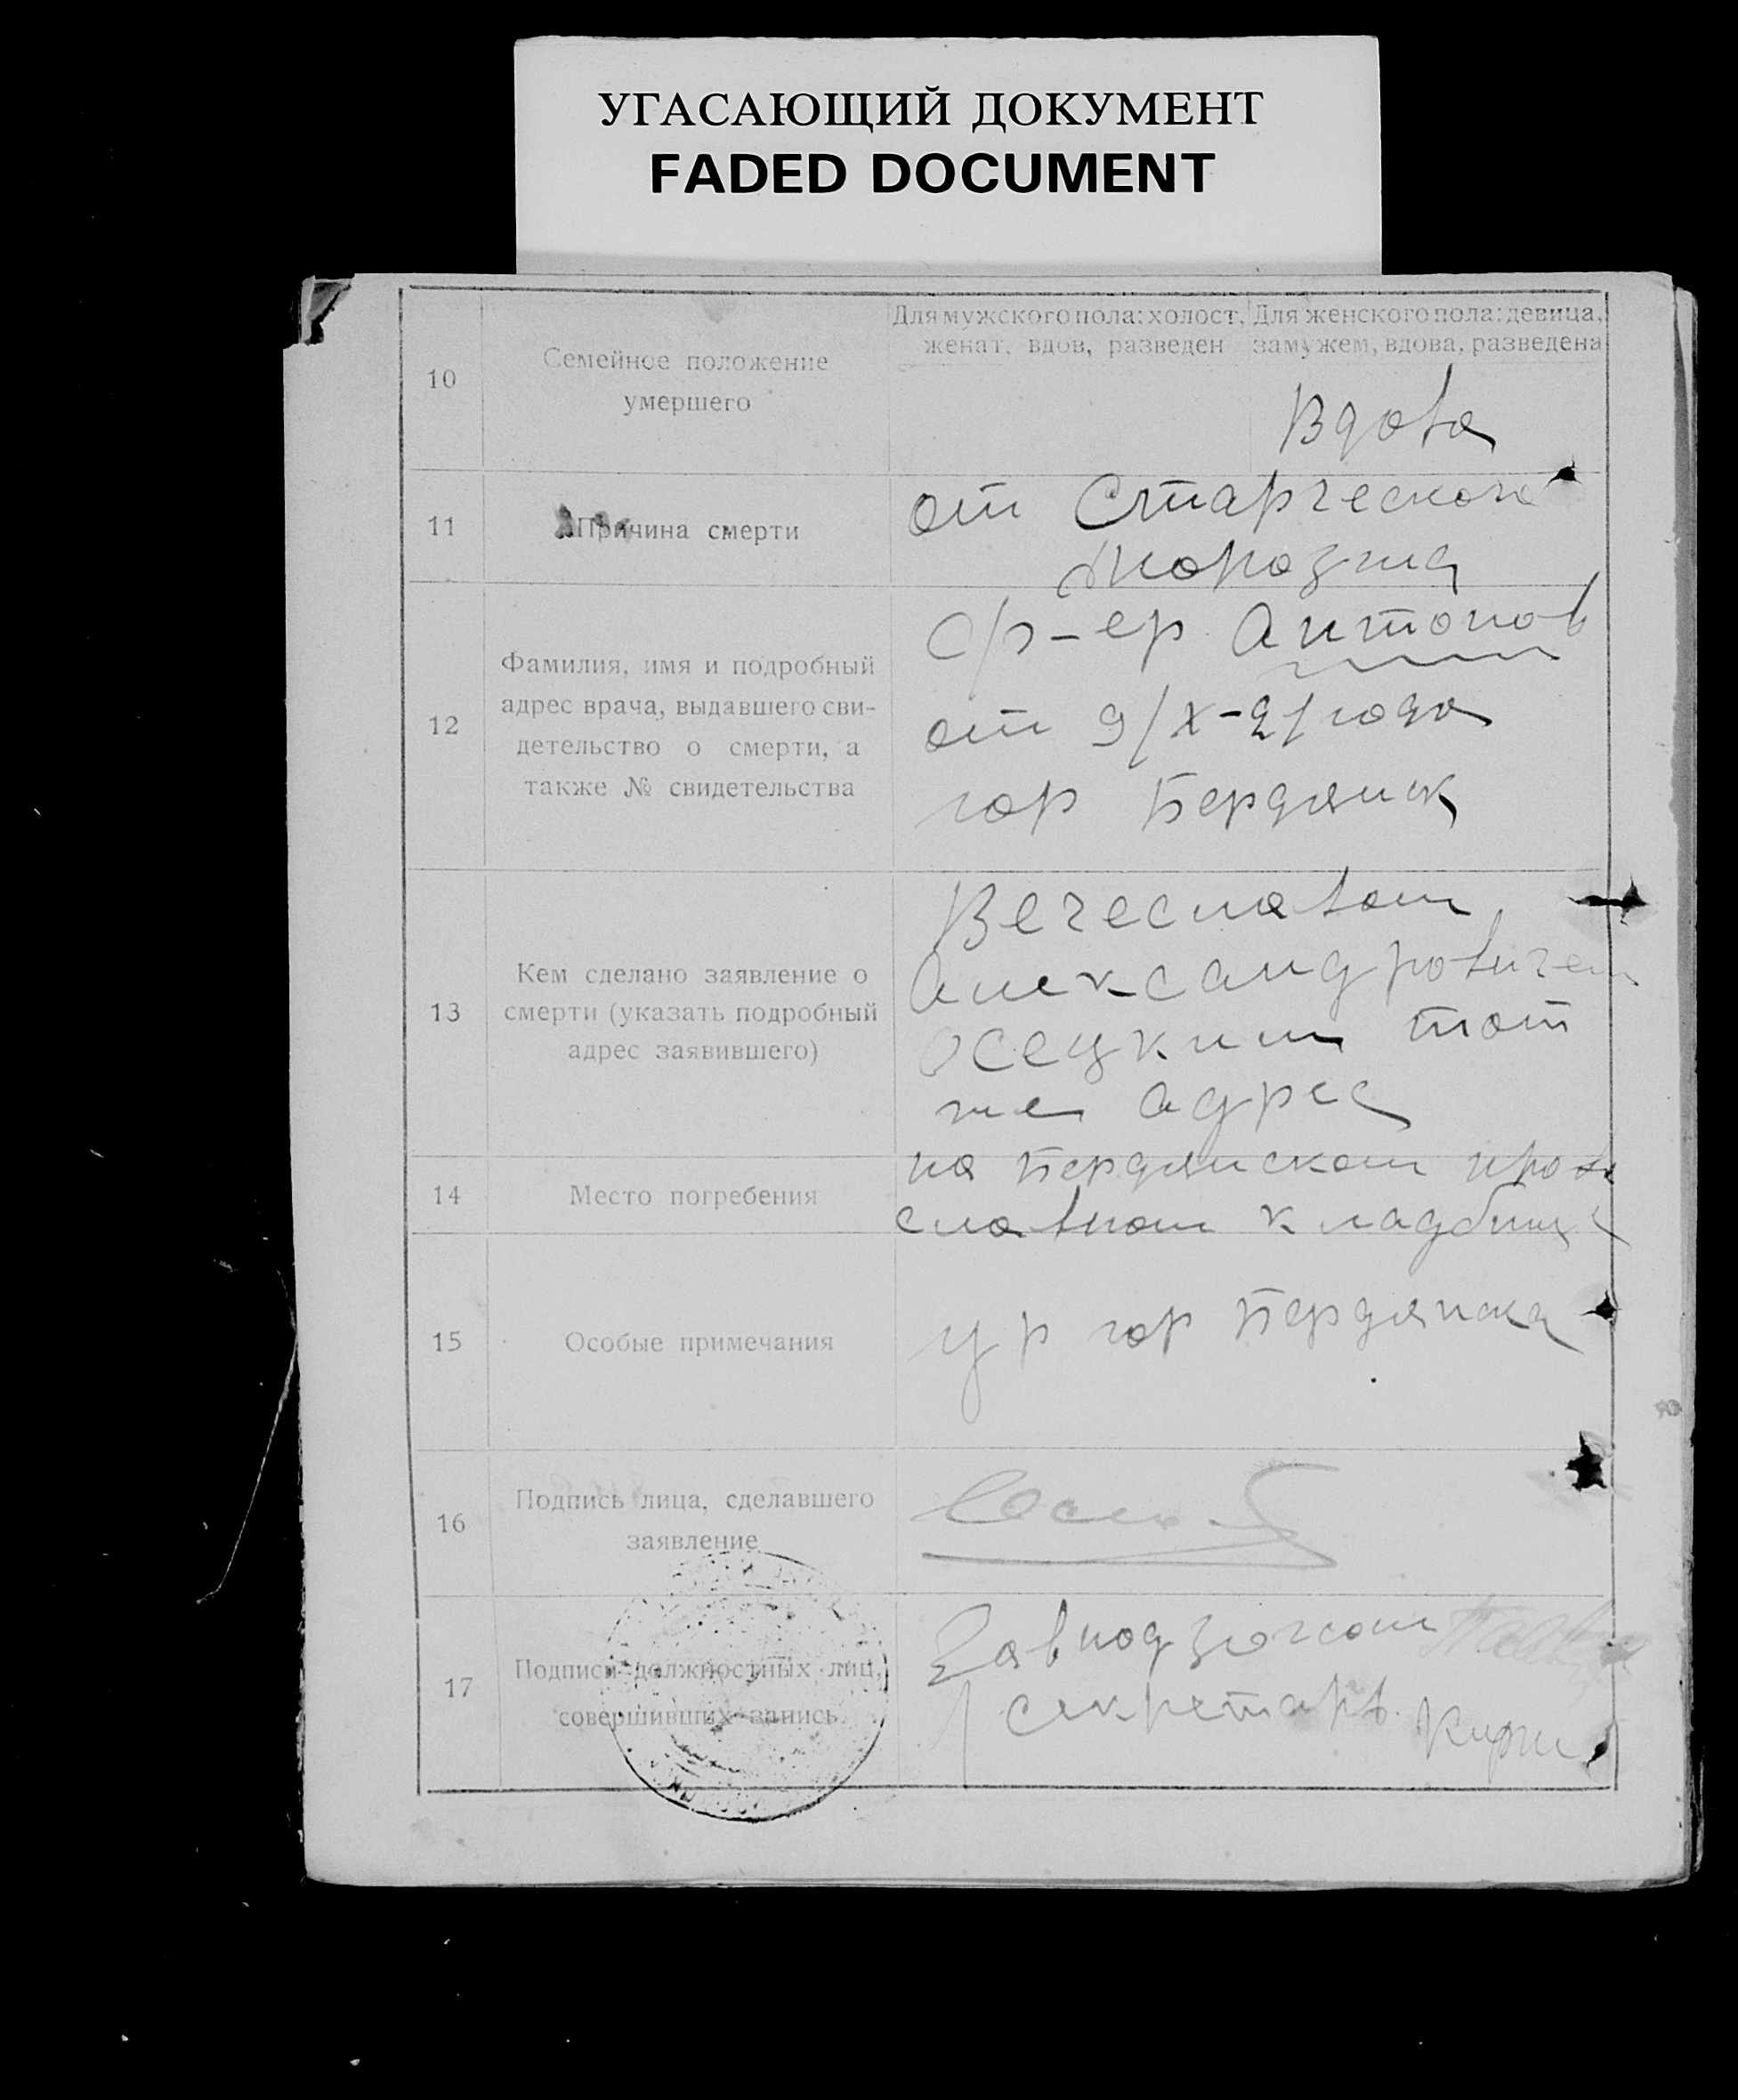 УГАСАЮЩИЙ ДОКУМЕНТ
FADED DOCUMENT
10
Семейное положение
умершего
Для мужского пола: холост,
женат, вдов, разведен
Для женского пола: девица,
замужем, вдова, разведена
Вдова
11
Причина смерти
от Старческого
12
Фамилия, имя и подробный
адрес врача, выдавшего сви-
детельство о смерти, а
также № свидетельства
Антонов
от 9/X-21 года
гор Бердянск
13
Кем сделано заявление о
смерти (указать подробный
адрес заявившего)
Вечеславом
Александровичем
Осецким тот
же адрес
14
Место погребения
на Бердянском право
славном кладбище
15
Особые примечания
ур гор Бердянска
16
Подпись лица, сделавшего
заявление
17
Подписи должностных лиц,
совершивших запись
Завподзагсом
Секретарь